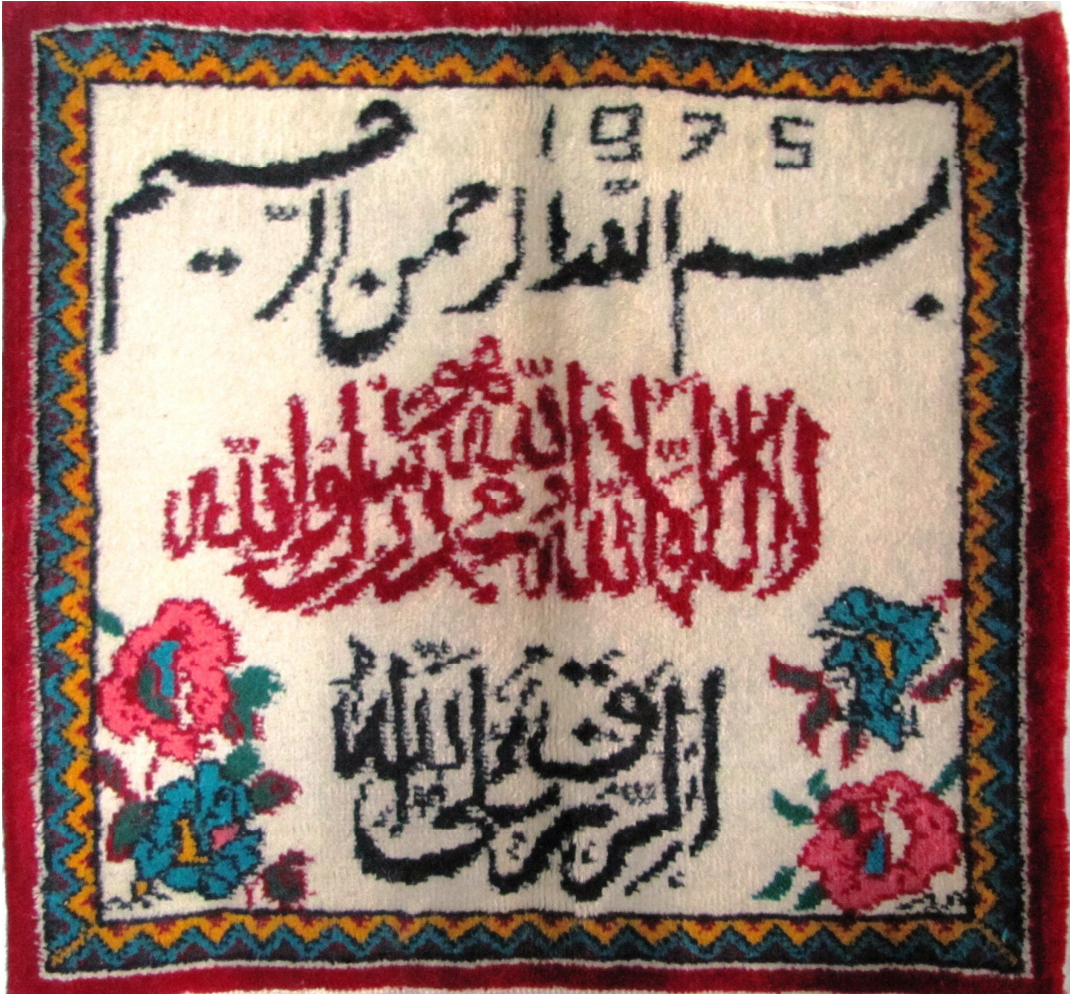 1975
بسم الله الرحمن الرحيم
لا اله الا الله محمد رسول الله
الرزق على الله